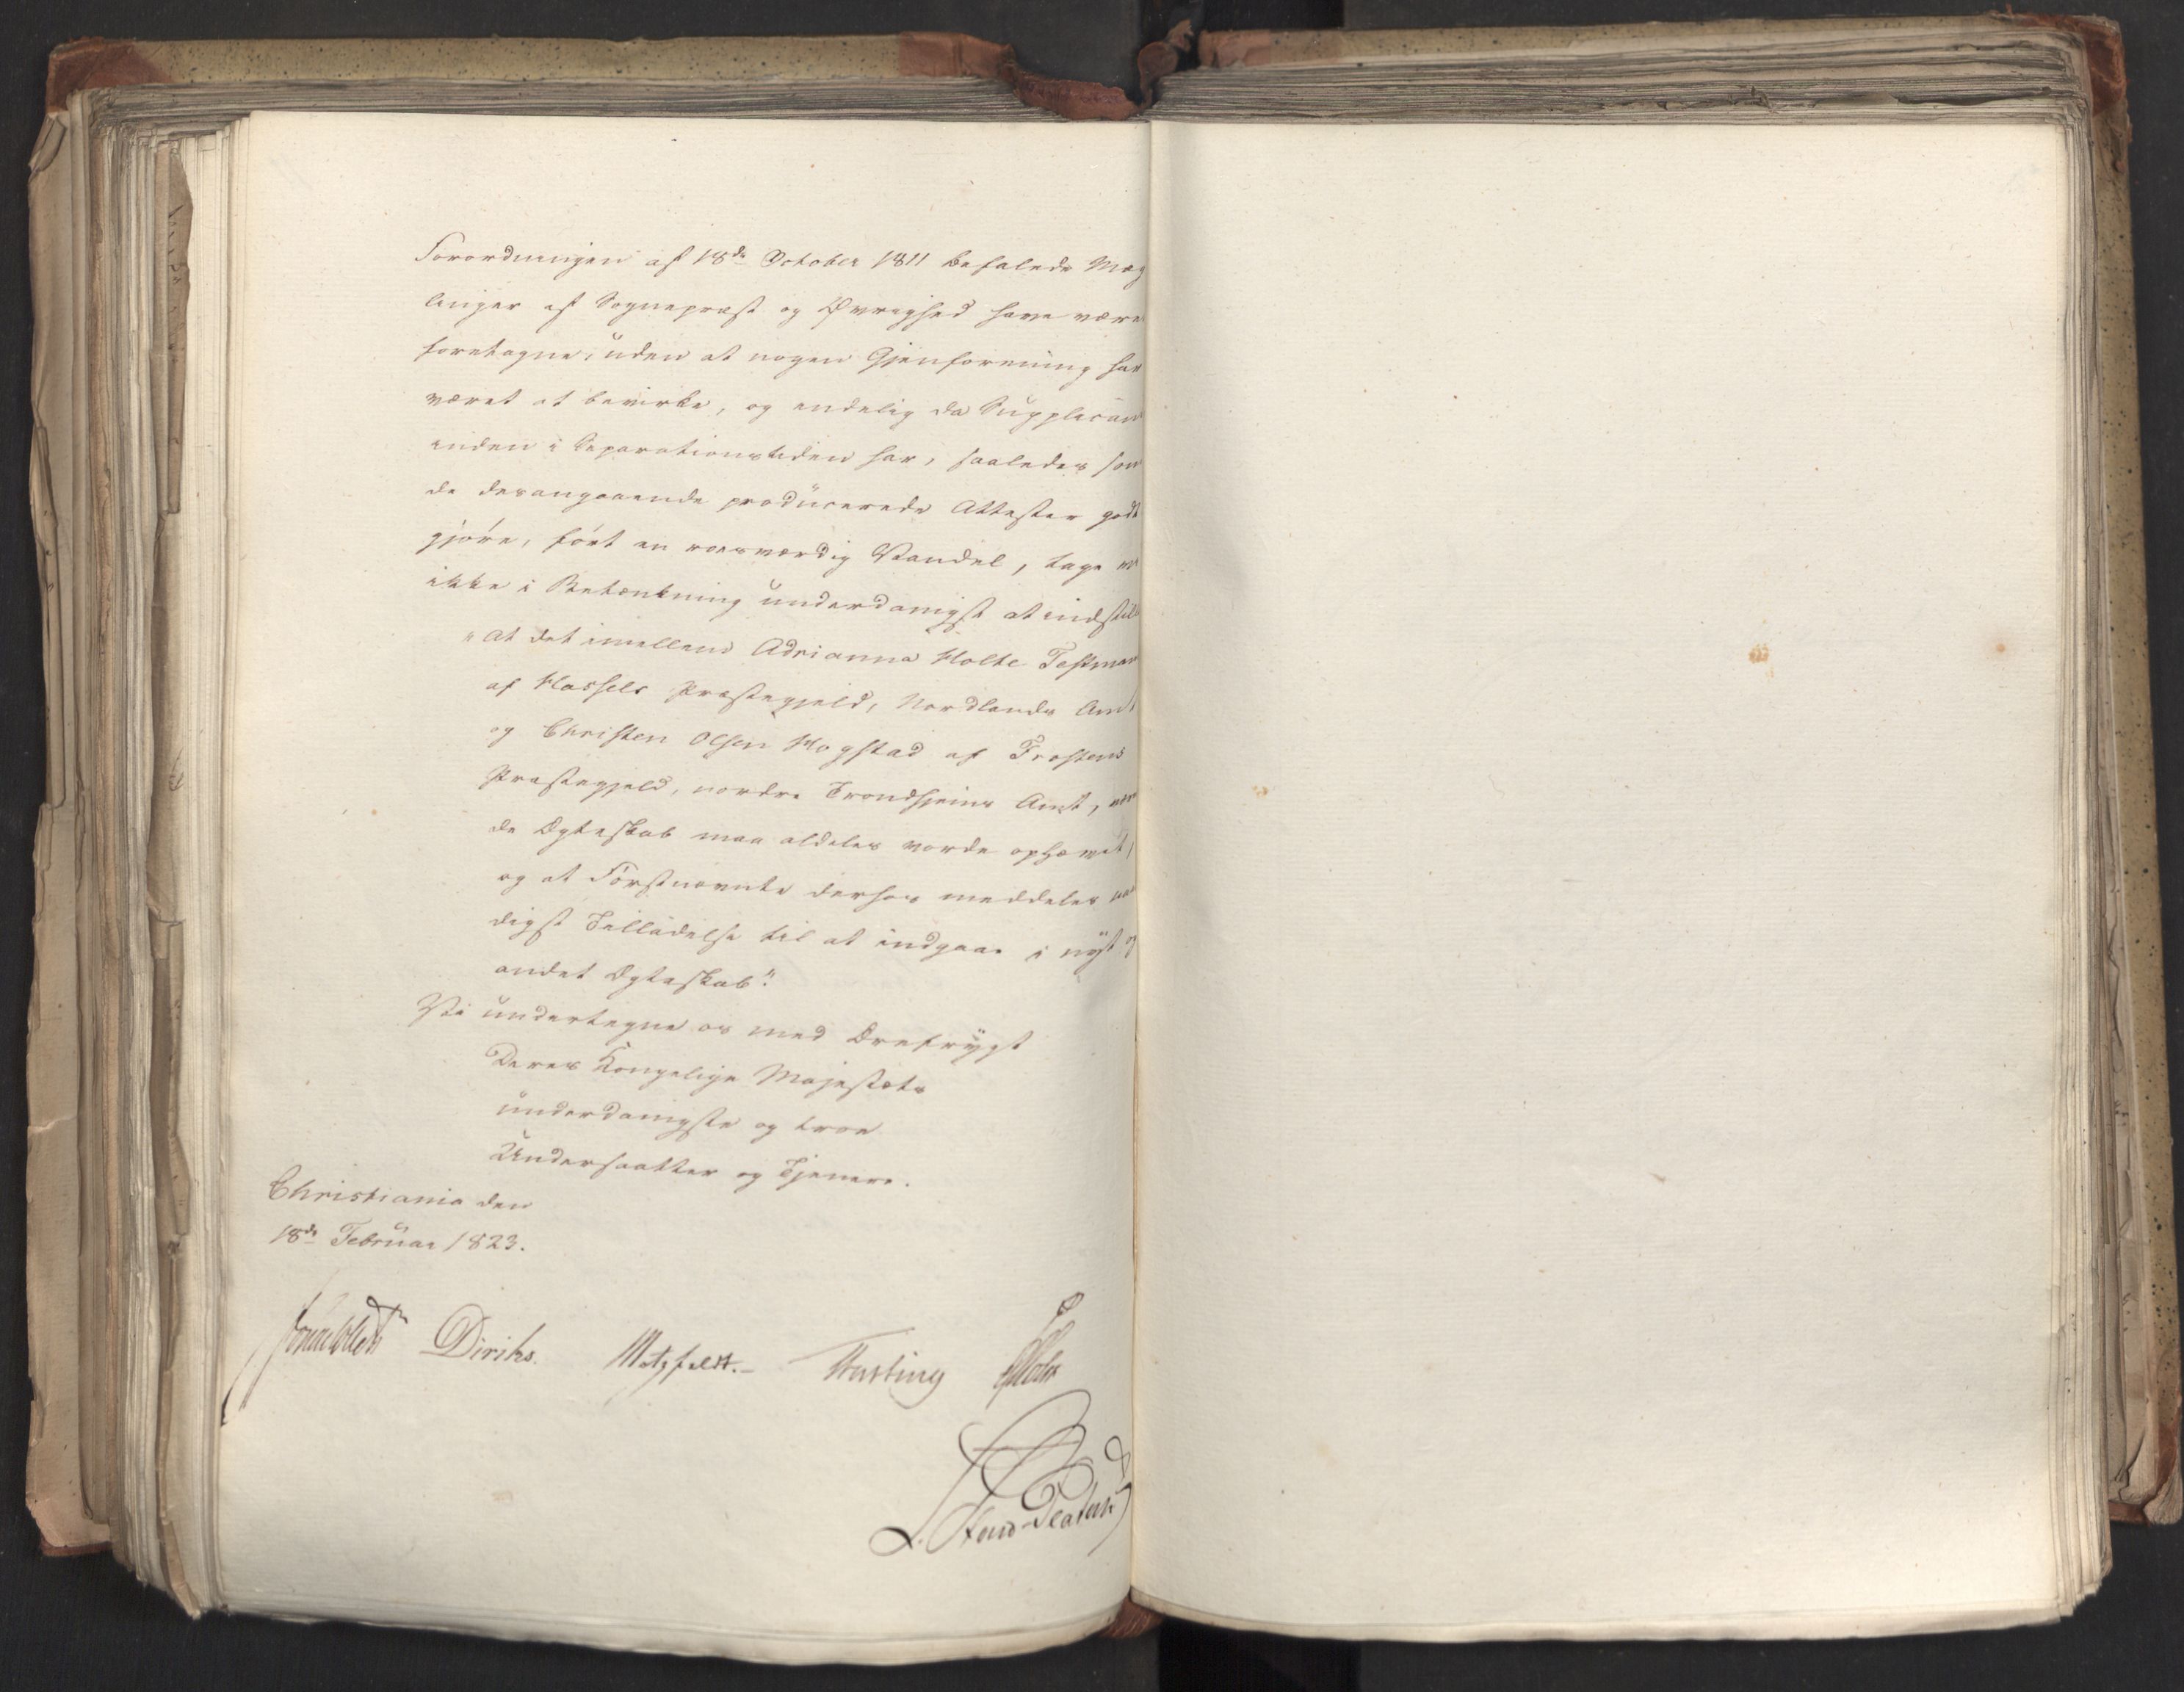 Forordningen af 18de October 1811 befalede Mæg
linger af Sognepræst og Øvrighed have være
foretagne, uden at nogen Gjenforening har
været at bevirke, og endelig da Supplican
inden i Separationstiden har, saaledes som
de desangaaende producerede Attester godt
gjøre, ført en roesværdig Vandel, tage vi
ikke i Betænkning underdanigst at indstille
"At det imellem Adrianna Holte Testman
af Hassels Præstegjeld, Nordlands Amt
og Christen Olsen Hogstad af Frostens
Præstegjeld, nordre Trondhjems Amt, være
de Ægteskab maa aldeles vorde ophævet,
og at Førstnævnte derhos meddeles naa
digst Tilladelse til at indgaae i nyt og
andet Ægteskab."
Vi undertegne os med Ærefrygt
Deres Kongelige Majestæts
underdanigste og troe
Undersaatter og Tjenere.
Christiania den
18de Februar 1823.
Jonas Collett Diriks. Motzfeldt. Fasting Holst